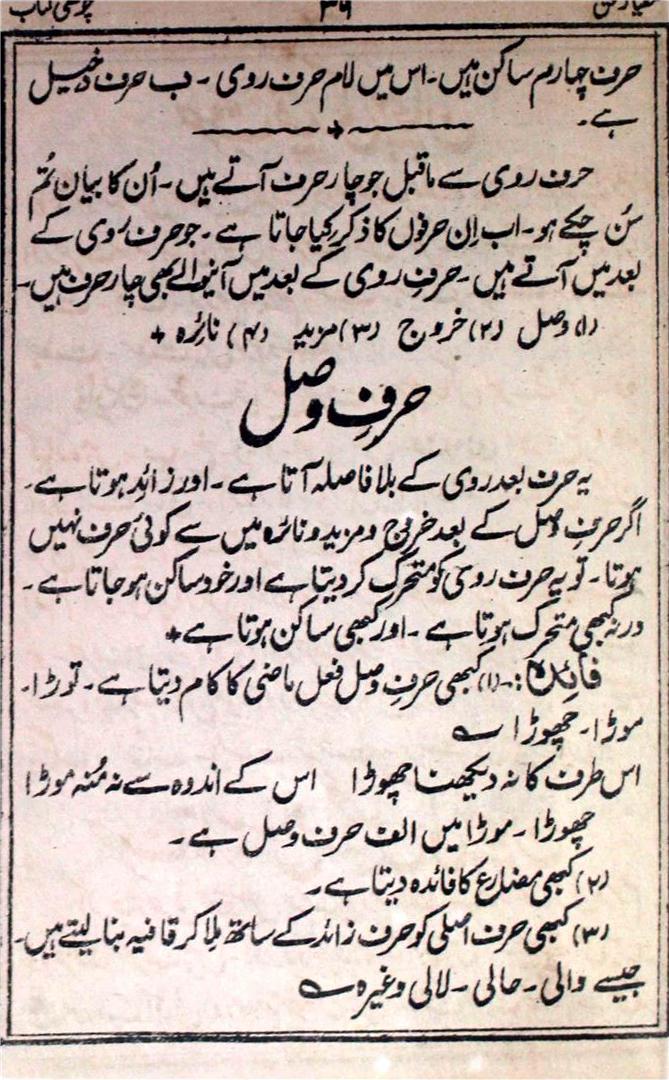 ۳۶
حرف چہارم ساکن ہیں۔ اس میں لام حرف روی۔ ب حرف دخیل
ہے۔
حرف روی سے ماقبل جو چار حرف آتے ہیں۔ اُن کا بیان تُم
سُن چکے ہو۔ اب اِن حرفوں کا ذکر کیا جاتا ہے۔ جو حرف روی کے
بعد میں آتے ہیں۔ حرفِ روی کے بعد میں آنیوالے بھی چار حرف ہیں۔
(۱) وصل (۲) خروج (۳) مزید (۴) نائرہ +
حرفِ وصل
یہ حرف بعد روی کے بلا فاصلہ آتا ہے۔ اور زائد ہوتا ہے۔
اگر حرفِ وصل کے بعد خروج و مزید و نائرہ میں سے کوئی حرف نہیں
ہوتا۔ تو یہ حرف روی کو متحرک کر دیتا ہے اور خود ساکن ہو جاتا ہے۔
ورنہ کبھی متحرک ہوتا ہے۔ اور کبھی ساکن ہوتا ہے +
فائدہ :۔ (۱) کبھی حرفِ وصل فعل ماضی کا کام دیتا ہے۔ توڑا۔
موڑا۔ چھوڑا ؎
اس طرف کا نہ دیکھنا چھوڑا اس کے اندوہ سے نہ مُنہ موڑا
چھوڑا۔ موڑا میں الف حرف وصل ہے۔
(۲) کبھی مضارع کا فائدہ دیتا ہے۔
(۳) کبھی حرف اصلی کو حرف زائد کے ساتھ ملا کر قافیہ بنا لیتے ہیں۔
جیسے والی۔ حالی۔ لالی وغیرہ ؎